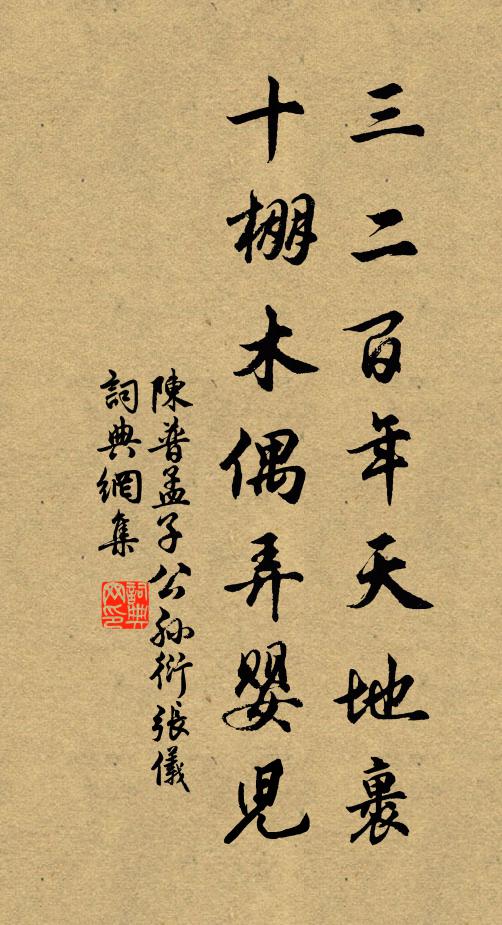 三二百年天地裹
十棚木偶弄嬰児
陳普孟子公孫衍張儀
詞典網集
詞典網印